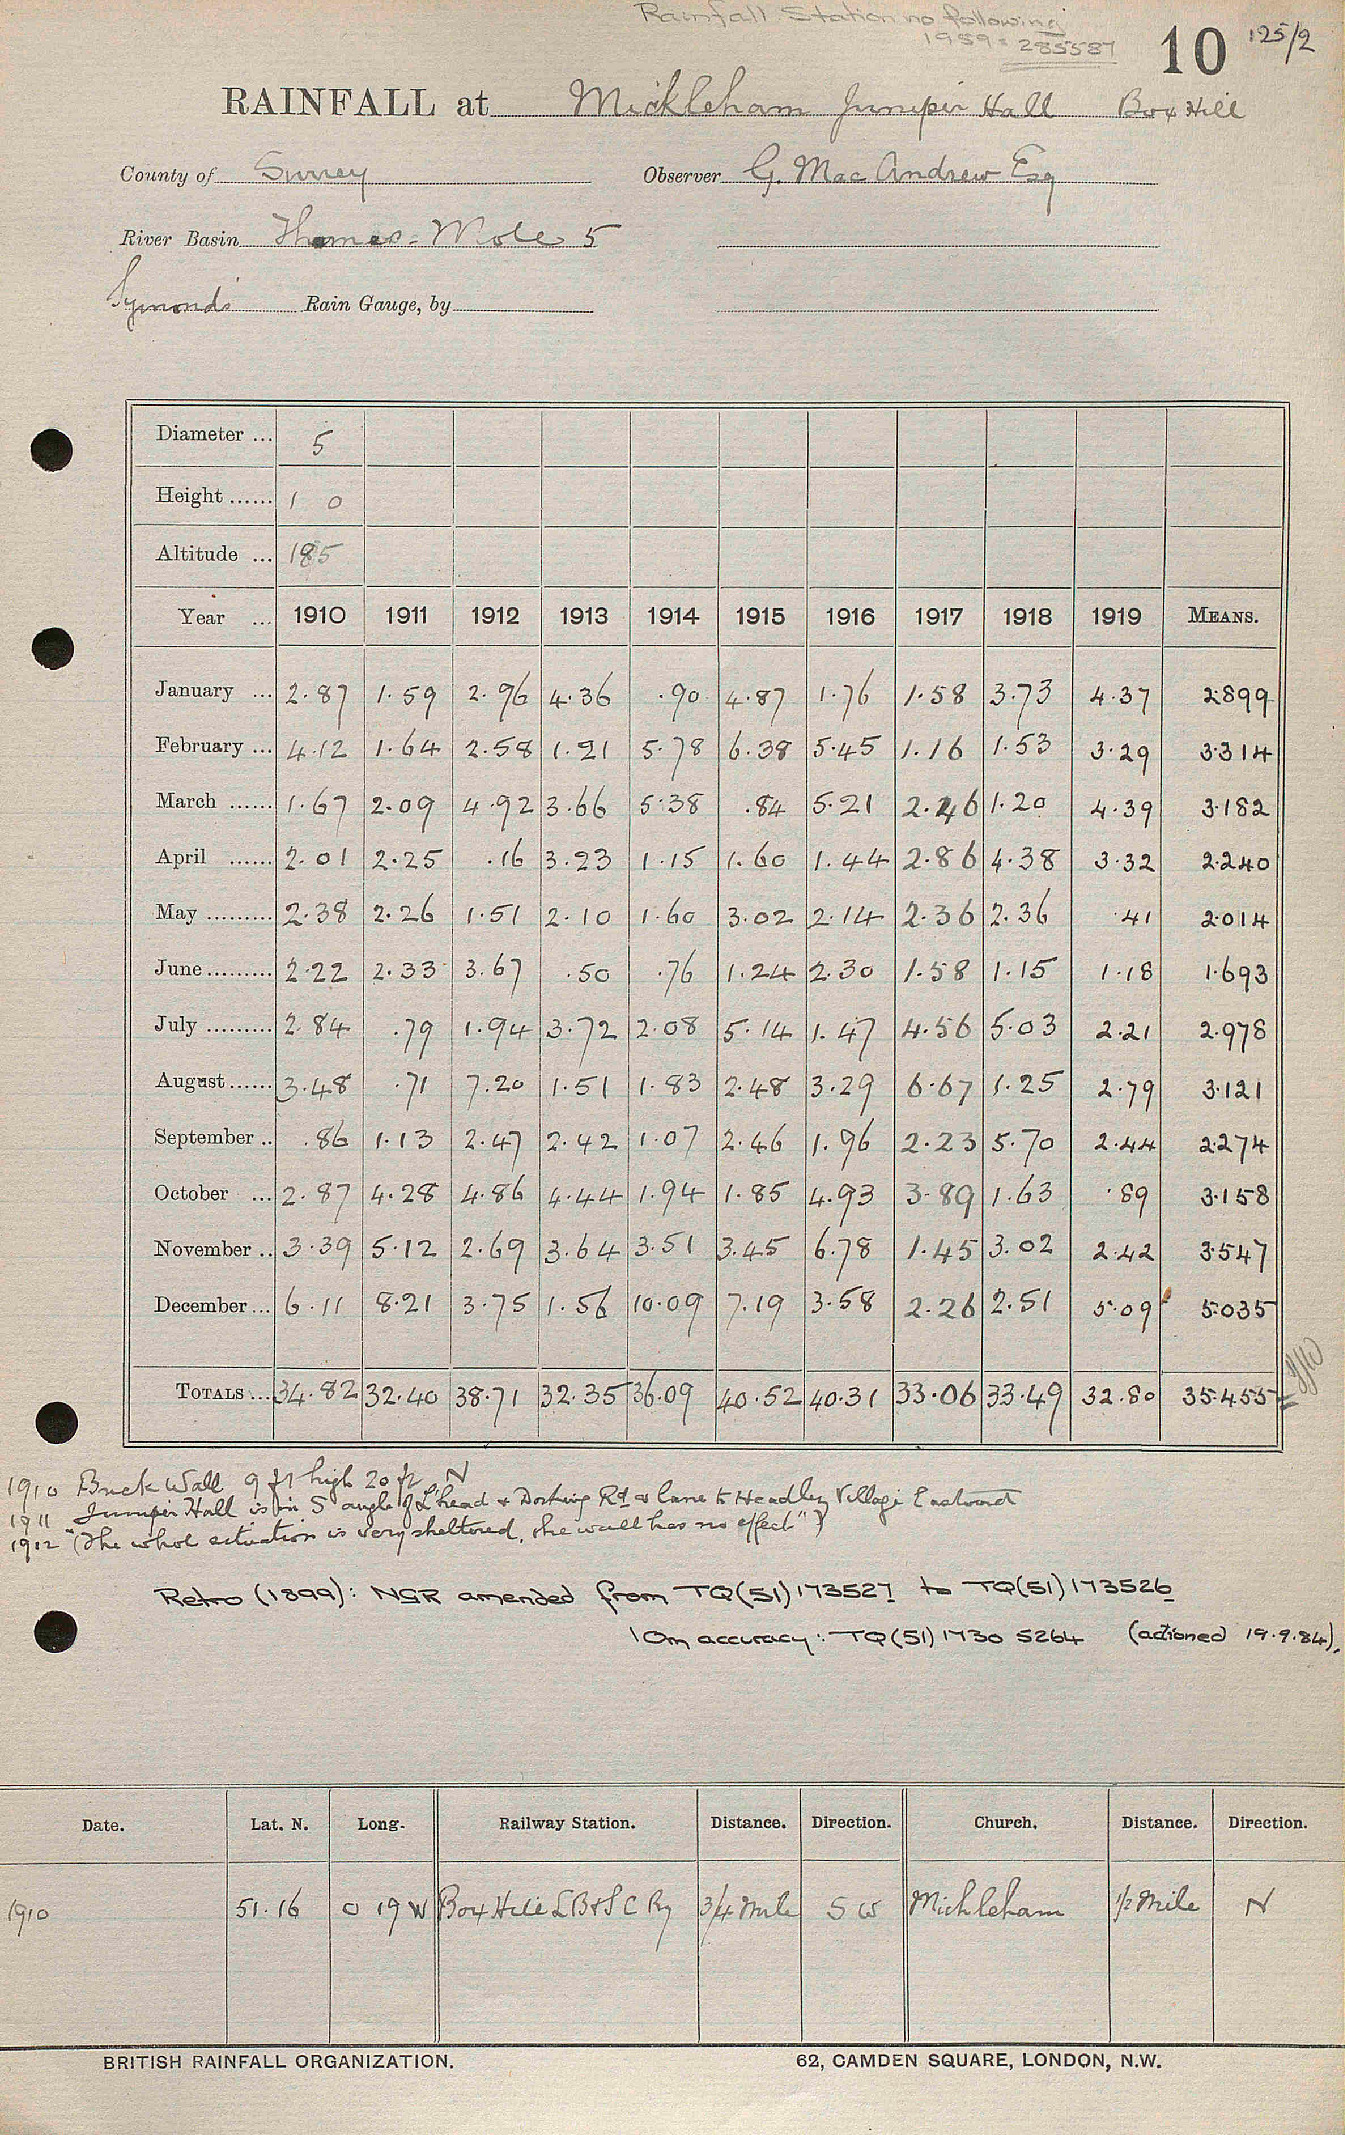 Rainfall Station no following
1959 = 285587
10 125/2
RAINFALL at Mickleham Juniper Hall Box Hill
County of Surrey Observer G. MacAndrew Esq
River Basin Thames - Mole 5
Symonds Rain Gauge, by
Diameter ... 5
Height ...... 1 0
Altitude ... 185
Year ... 1910 1911 1912 1913 1914 1915 1916 1917 1918 1919 MEANS.
January ... 2.87 1.59 2.96 4.36 .90 4.87 1.76 1.58 3.73 4.37 2.899
February ... 4.12 1.64 2.58 1.21 5.78 6.38 5.45 1.16 1.53 3.29 3.314
March ...... 1.67 2.09 4.92 3.66 5.38 .84 5.21 2.26 1.20 4.39 3.182
April ...... 2.01 2.25 .16 3.23 1.15 1.60 1.44 2.86 4.38 3.32 2.240
May ......... 2.38 2.26 1.51 2.10 1.60 3.02 2.14 2.36 2.36 .41 2.014
June ......... 2.22 2.33 3.67 .50 .76 1.24 2.30 1.58 1.15 1.18 1.693
July ......... 2.84 .79 1.94 3.72 2.08 5.14 1.47 4.56 5.03 2.21 2.978
August ...... 3.48 .71 7.20 1.51 1.83 2.48 3.29 6.67 1.25 2.79 3.121
September .. .86 1.13 2.47 2.42 1.07 2.46 1.96 2.23 5.70 2.44 2.274
October ... 2.87 4.28 4.86 4.44 1.94 1.85 4.93 3.89 1.63 .89 3.158
November .. 3.39 5.12 2.69 3.64 3.51 3.45 6.78 1.45 3.02 2.42 3.547
December ... 6.11 8.21 3.75 1.56 10.09 7.19 3.58 2.26 2.51 5.09 5.035
TOTALS ... 34.82 32.40 38.71 32.35 36.09 40.52 40.31 33.06 33.49 32.80 35.455
1910 Brick Wall 9 ft high 20 ft N
1911 Juniper Hall is in S angle of L'head & Dorking Rd & lane to Headley Village Eastward
1912 "(The whole situation is very sheltered, the wall has no effect")
Retro (1899): NGR amended from TQ(51)173527 to TQ(51)173526
10m accuracy: TQ(51)1730 5264 (actioned 19.9.84).
Date. Lat. N. Long. Railway Station. Distance. Direction. Church. Distance. Direction.
1910 51.16 0 19 W Box Hill LB&SC Ry 3/4 Mile SW Mickleham 1/2 Mile N
BRITISH RAINFALL ORGANIZATION. 62, CAMDEN SQUARE, LONDON, N.W.